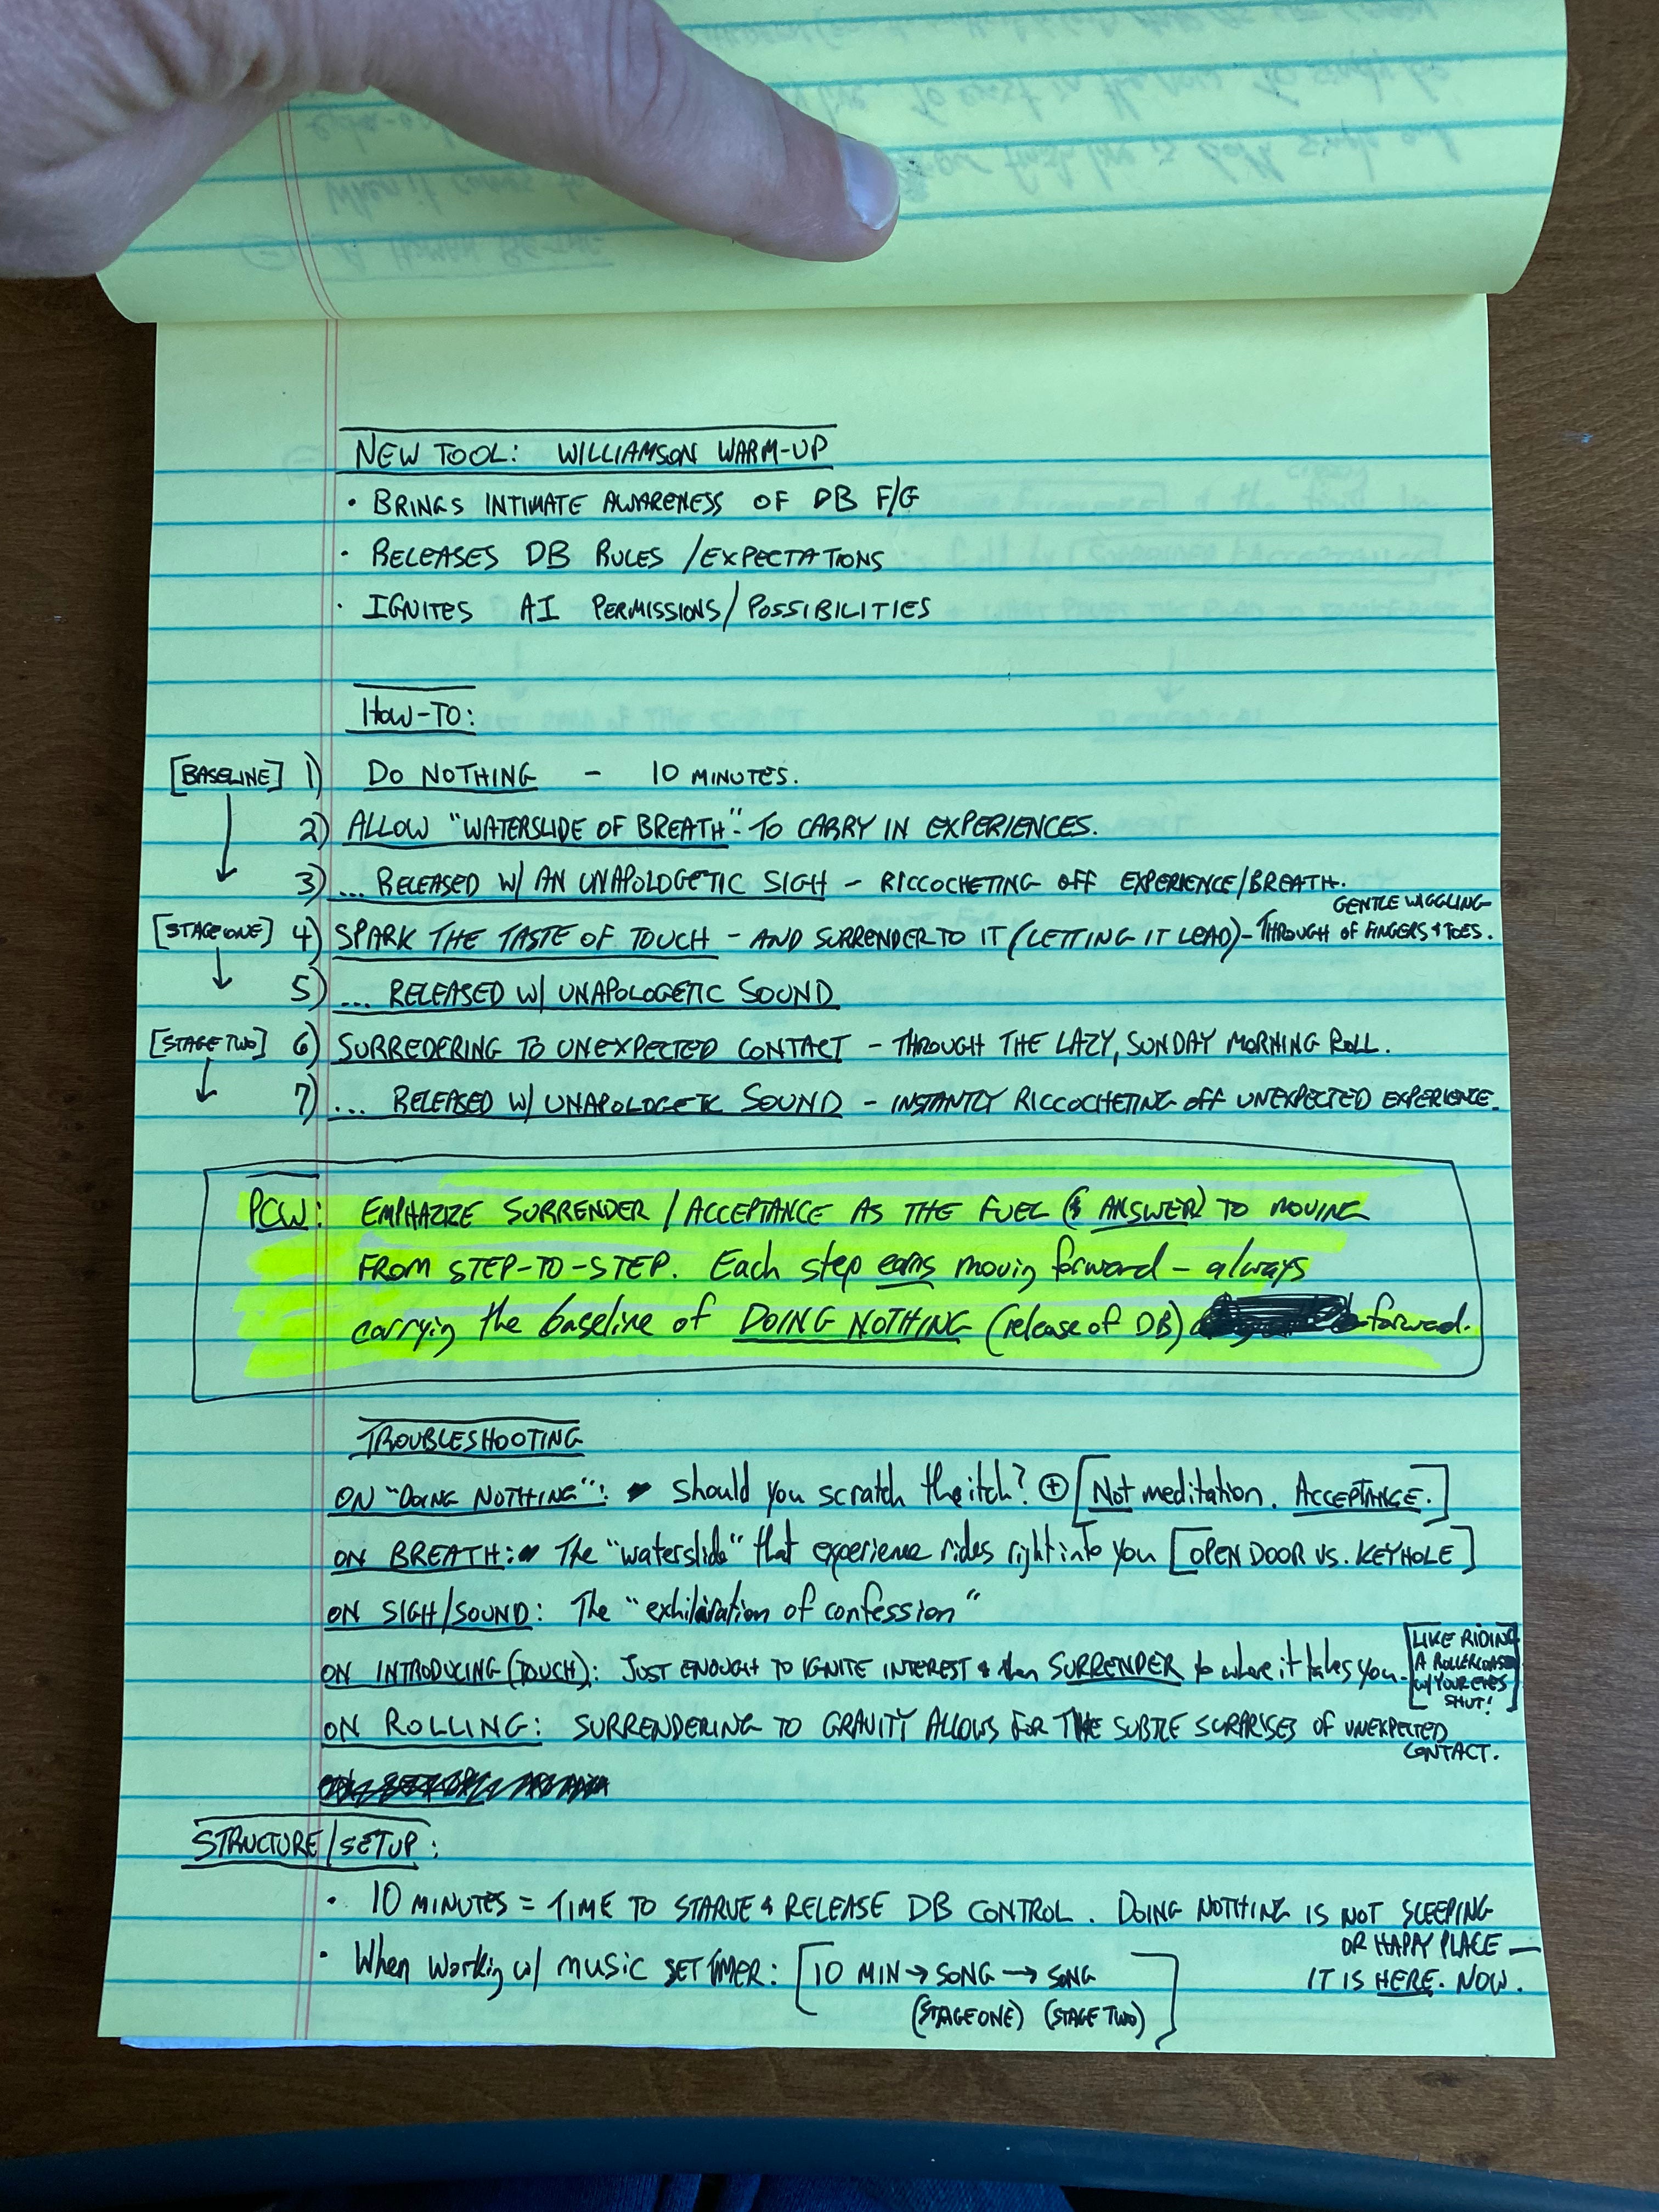 NEW TOOL: WILLIAMSON WARM-UP
• BRINGS INTIMATE AWARENESS OF DB F/G
• RELEASES DB RULES/EXPECTATIONS
• IGNITES AI PERMISSIONS/POSSIBILITIES
HOW-TO:
[BASELINE] 1) DO NOTHING - 10 MINUTES.
2) ALLOW "WATERSLIDE OF BREATH" - TO CARRY IN EXPERIENCES.
3) ... RELEASED W/ AN UNAPOLOGETIC SIGH - RICCOCHETING OFF EXPERIENCE/BREATH.
[STAGE ONE] 4) SPARK THE TASTE OF TOUCH - AND SURRENDER TO IT (LETTING IT LEAD) - THROUGH GENTLE WIGGLING OF FINGERS & TOES.
5) ... RELEASED W/ UNAPOLOGETIC SOUND
[STAGE TWO] 6) SURREDERING TO UNEXPECTED CONTACT - THROUGH THE LAZY, SUNDAY MORNING ROLL.
7) ... RELEASED W/ UNAPOLOGETIC SOUND - INSTANTLY RICCOCHETING OFF UNEXPECTED EXPERIENCE.
PCW: EMPHAZIZE SURRENDER / ACCEPTANCE AS THE FUEL (& ANSWER) TO MOVING
FROM STEP-TO-STEP. Each step earns moving forward - always
carrying the baseline of DOING NOTHING (release of DB) forward.
TROUBLESHOOTING
ON "DOING NOTHING": should you scratch the itch? ⊕ [Not meditation. ACCEPTANCE.]
ON BREATH: The "waterslide" that experience rides right into you [OPEN DOOR VS. KEYHOLE]
ON SIGH/SOUND: The "exhilaration of confession"
ON INTRODUCING (TOUCH): JUST ENOUGH TO IGNITE INTEREST & then SURRENDER to where it takes you - [LIKE RIDING A ROLLERCOASTER W/ YOUR EYES SHUT!]
ON ROLLING: SURRENDERING TO GRAVITY ALLOWS FOR THE SUBTLE SURPRISES OF UNEXPECTED
CONTACT.
STRUCTURE/SETUP:
• 10 MINUTES = TIME TO STARVE & RELEASE DB CONTROL. DOING NOTHING IS NOT SLEEPING
OR HAPPY PLACE —
IT IS HERE. NOW.
• When working w/ music SET TIMER: [10 MIN → SONG → SONG]
(STAGE ONE) (STAGE TWO)